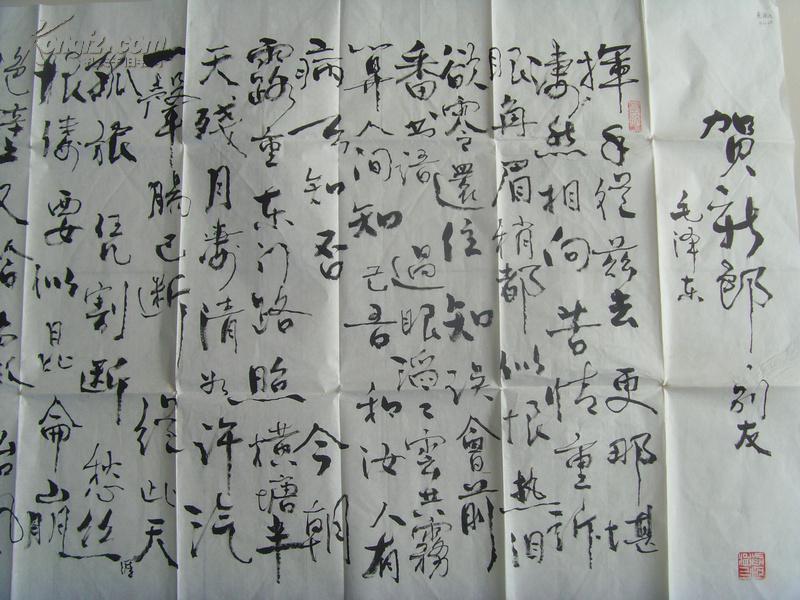 賀新郎·别友
毛泽东
揮手從兹去更那堪
凄然相向苦情重訴
眼角眉梢都似恨热泪
欲零還住知误會前
番书语過眼滔〻雲共霧
算人间知己吾和汝人有
病天知否今朝
霜重东门路照横塘半
天殘月凄清如许汽
一聲腸已断從此天
孤旅凭割断愁丝
涯
恨缕要似昆侖崩
绝壁又恰
台风
Kongfz.com